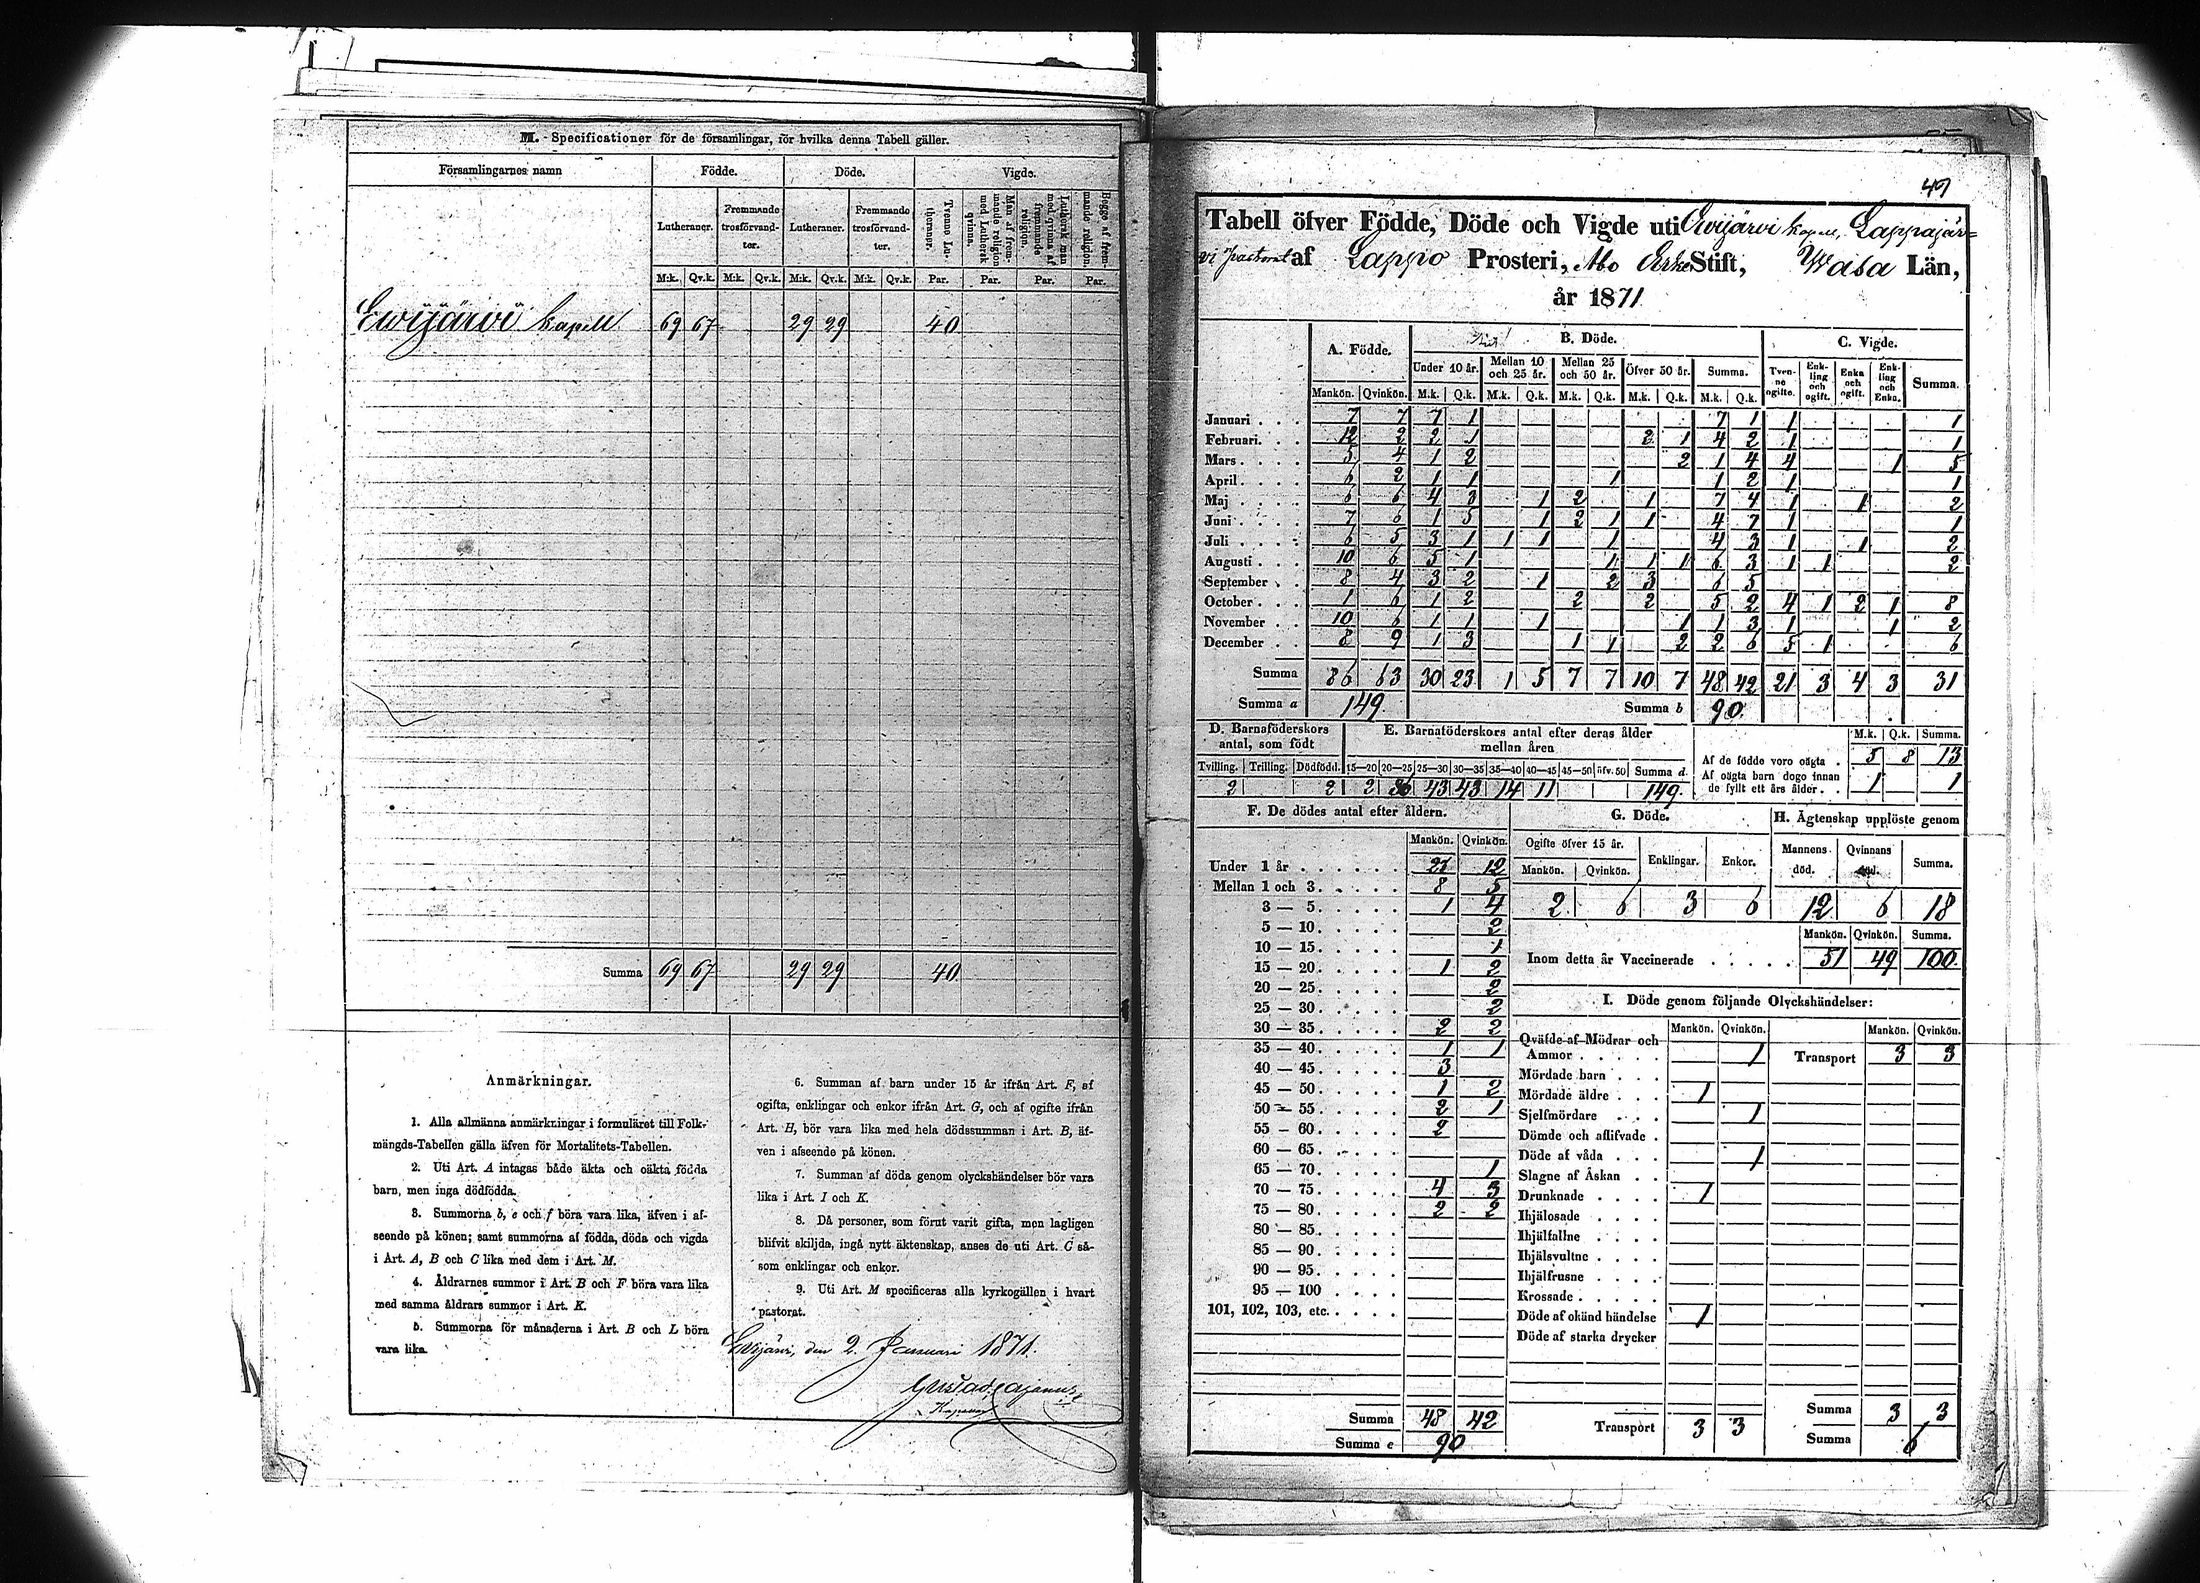 M. Specificationer för de församlingar, för hvilka denna Tabell gäller.
Församlingarnes namn Födde. Döde. Vigde.
Lutheraner. Fremmande trosförvandter. Lutheraner. Fremmande trosförvandter. Tvenne Lutheraner. Man af fremmande religion med Luthersk qvinna. Luthersk man med qvinna af fremmande religion. Begge af fremmande religion.
M:k. Qv.k. M:k. Qv.k. M:k. Qv.k. M:k. Qv.k. Par. Par. Par. Par.
Ewijärvi kapell 69 67 29 29 40
Summa 69 67 29 29 40
Anmärkningar.
1. Alla allmänna anmärkningar i formuläret till Folk-
mängds-Tabellen gälla äfven för Mortalitets-Tabellen.
2. Uti Art. A intagas både äkta och oäkta födda
barn, men inga dödfödda.
3. Summorna b, e och f böra vara lika, äfven i af-
seende på könen; samt summorna af födda, döda och vigda
i Art. A, B och C lika med dem i Art. M.
4. Åldrarnes summor i Art. B och F böra vara lika
med samma åldrars summor i Art. K.
5. Summorna för månaderna i Art. B och L böra
vara lika.
6. Summan af barn under 15 år ifrån Art. F, af
ogifta, enklingar och enkor ifrån Art. G, och af ogifte ifrån
Art. H, bör vara lika med hela dödssumman i Art. B, äf-
ven i afseende på könen.
7. Summan af döda genom olyckshändelser bör vara
lika i Art. I och K.
8. Då personer, som förut varit gifta, men lagligen
blifvit skiljda, ingå nytt äktenskap, anses de uti Art. C så-
som enklingar och enkor.
9. Uti Art. M specificeras alla kyrkogällen i hvart
pastorat.
Ewijärvi, den 2 Januari 1871.
Gustaf Cajanus
Kapellan
47
Tabell öfver Födde, Döde och Vigde uti Ewijärvi kapell, Lappajär=
vi pastorat af Lappo Prosteri, Åbo Erke Stift, Wasa Län,
år 1871
A. Födde. B. Döde. C. Vigde.
Under 10 år. Mellan 10 och 25 år. Mellan 25 och 50 år. Öfver 50 år. Summa. Tvenne ogifte. Enkling och ogift. Enka och ogift. Enkling och Enka. Summa.
Mankön. Qvinkön. M.k. Q.k. M.k. Q.k. M.k. Q.k. M.k. Q.k. M.k. Q.k.
Januari 7 7 7 1 7 1 1 1
Februari 12 2 2 1 2 1 4 2 1 1
Mars 5 4 1 2 2 1 4 4 1 5
April 6 2 1 1 1 1 2 1 1
Maj 6 6 4 3 1 2 1 7 4 1 1 2
Juni 7 6 1 5 1 2 1 1 4 7 1 1
Juli 6 5 3 1 1 1 1 4 3 1 1 2
Augusti 10 6 5 1 1 1 1 6 3 1 1 2
September 8 4 3 2 1 2 3 6 5
October 1 6 1 2 2 2 5 2 4 1 2 1 8
November 10 6 1 1 1 1 1 3 1 1 2
December 8 9 1 3 1 1 2 2 6 5 1 6
Summa 86 63 30 23 1 5 7 7 10 7 48 42 21 3 4 3 31
Summa a 149 Summa b 90
D. Barnaföderskors antal, som födt
Tvilling. Trilling. Dödfödd.
2 2
E. Barnaföderskors antal efter deras ålder mellan åren
15—20 20—25 25—30 30—35 35—40 40—45 45—50 öfv. 50 Summa d
2 36 43 43 14 11 149.
M.k. Q.k. Summa.
Af de födde voro oägta 5 8 13
Af oägta barn dogo innan
de fyllt ett års ålder 1 1
F. De dödes antal efter åldern.
Mankön. Qvinkön.
Under 1 år 21 12
Mellan 1 och 3 8 5
3 — 5 1 4
5 — 10 2
10 — 15 1
15 — 20 1 2
20 — 25 2
25 — 30 2
30 — 35 2 2
35 — 40 1 1
40 — 45 3
45 — 50 1 2
50 — 55 2 1
55 — 60 2
60 — 65
65 — 70 1
70 — 75 4 3
75 — 80 2 2
80 — 85
85 — 90
90 — 95
95 — 100
101, 102, 103, etc.
Summa 48 42
Summa e 90
G. Döde.
Ogifte öfver 15 år. Enklingar. Enkor.
Mankön. Qvinkön.
2 6 3 6
H. Ägtenskap upplöste genom
Mannens död. Qvinnans död. Summa.
12 6 18
Mankön. Qvinkön. Summa.
Inom detta år Vaccinerade 51 49 100
I. Döde genom följande Olyckshändelser:
Mankön. Qvinkön. Mankön. Qvinkön.
Qväfde af Mödrar och
Ammor 1 Transport 3 3
Mördade barn
Mördade äldre 1
Sjelfmördare 1
Dömde och aflifvade
Döde af våda 1
Slagne af Åskan
Drunknade 1
Ihjälosade
Ihjälfallne
Ihjälsvultne
Ihjälfrusne
Krossade
Döde af okänd händelse 1
Döde af starka drycker
Transport 3 3
Summa 3 3
Summa 6